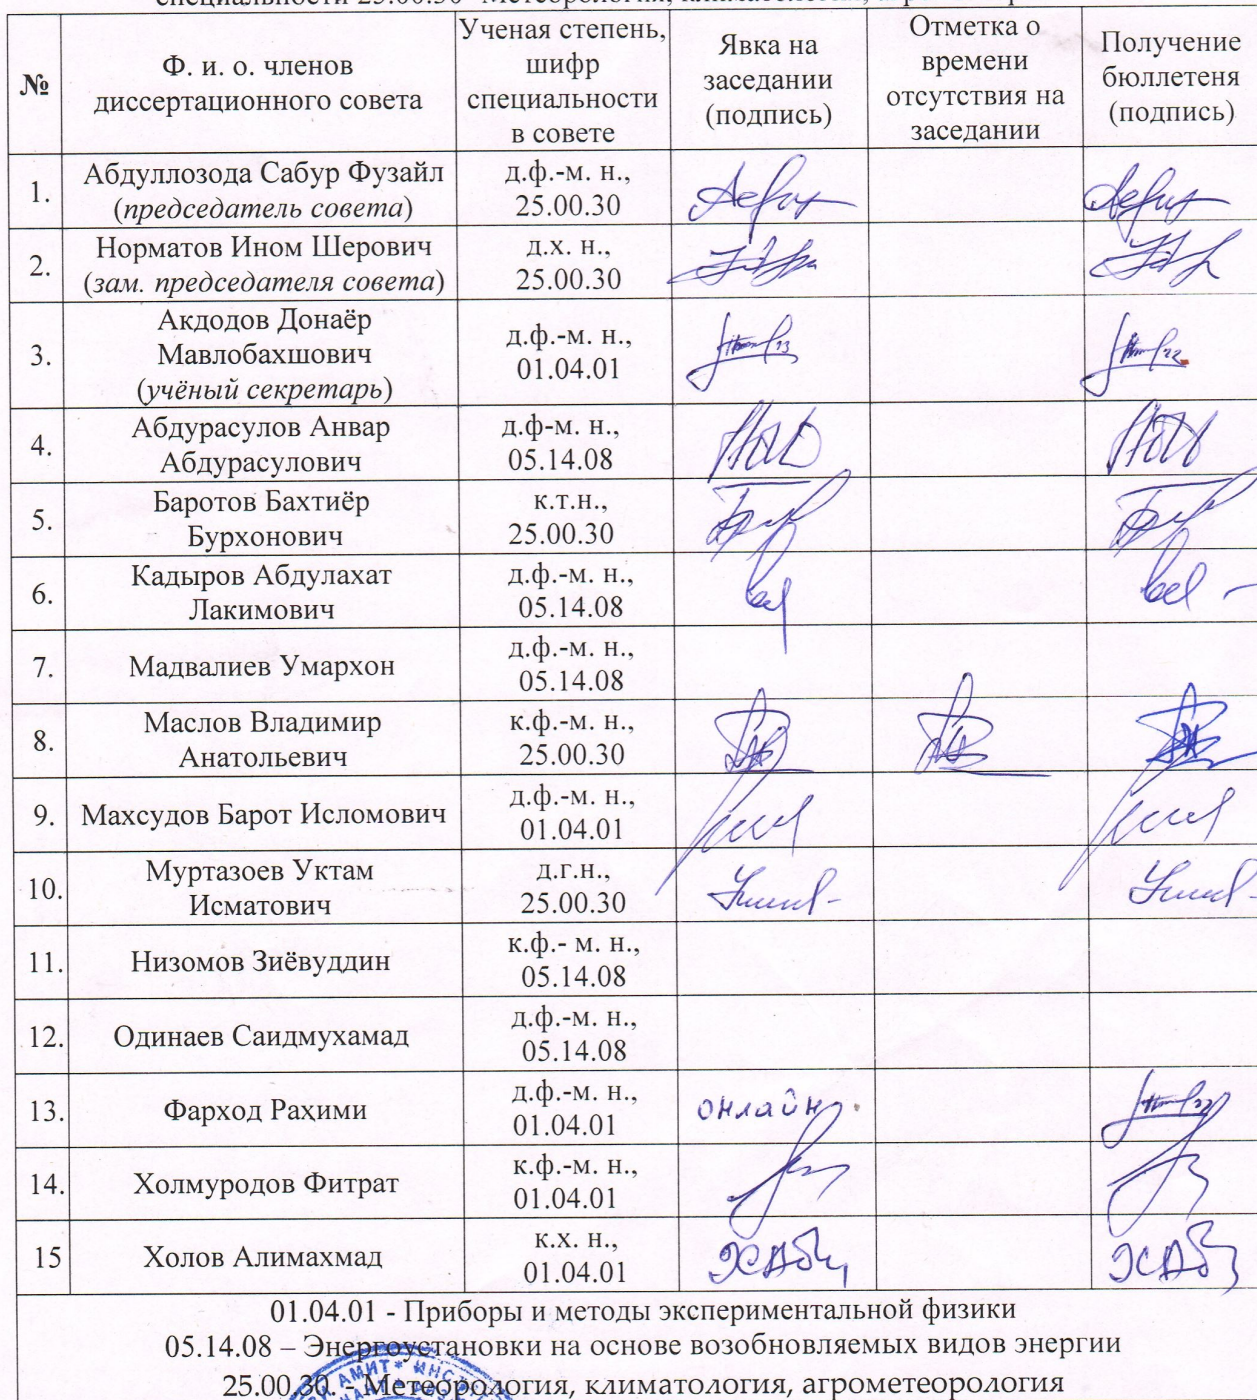 специальности 25.00.30
№
Ф. и. о. членов
диссертационного совета
Ученая степень,
шифр
специальности
в совете
Явка на
заседании
(подпись)
Отметка о
времени
отсутствия на
заседании
Получение
бюллетеня
(подпись)
1.
Абдуллозода Сабур Фузайл
(председатель совета)
д.ф.-м. н.,
25.00.30
2.
Норматов Ином Шерович
(зам. председателя совета)
д.х. н.,
25.00.30
3.
Акдодов Донаёр
Мавлобахшович
(учёный секретарь)
д.ф.-м. н.,
01.04.01
4.
Абдурасулов Анвар
Абдурасулович
д.ф-м. н.,
05.14.08
5.
Баротов Бахтиёр
Бурхонович
к.т.н.,
25.00.30
6.
Кадыров Абдулахат
Лакимович
д.ф.-м. н.,
05.14.08
7.
Мадвалиев Умархон
д.ф.-м. н.,
05.14.08
8.
Маслов Владимир
Анатольевич
к.ф.-м. н.,
25.00.30
9.
Махсудов Барот Исломович
д.ф.-м. н.,
01.04.01
10.
Муртазоев Уктам
Исматович
д.г.н.,
25.00.30
11.
Низомов Зиёвуддин
к.ф.- м. н.,
05.14.08
12.
Одинаев Саидмухамад
д.ф.-м. н.,
05.14.08
13.
Фарход Рахими
д.ф.-м. н.,
01.04.01
онлайн
14.
Холмуродов Фитрат
к.ф.-м. н.,
01.04.01
15
Холов Алимахмад
к.х. н.,
01.04.01
01.04.01 - Приборы и методы экспериментальной физики
05.14.08 – Энергоустановки на основе возобновляемых видов энергии
25.00.30. - Метеорология, климатология, агрометеорология